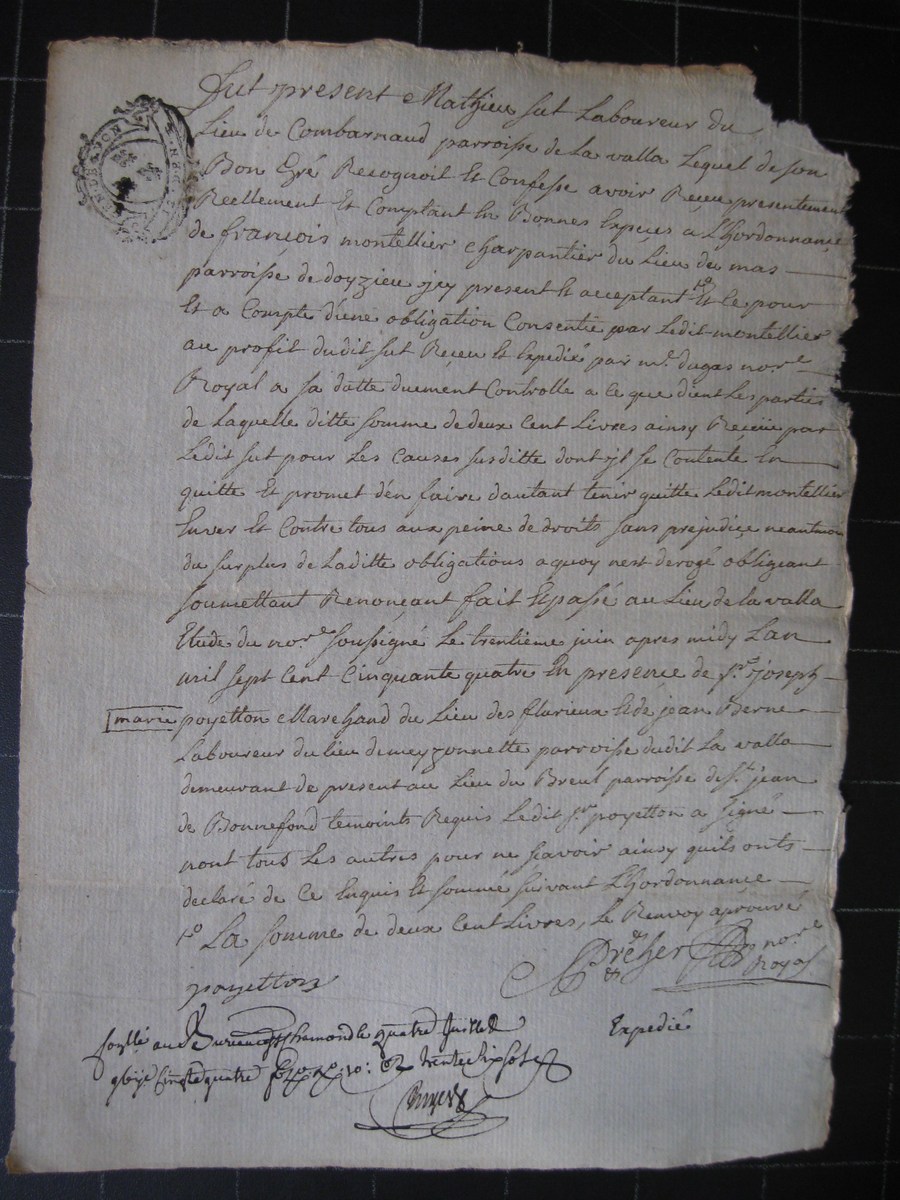 Fut present Mathieu fut Laboureur du
Lieu de Combarnaud parroisse de La valla Lequel de son
Bon Gré Recognoit Et Confesse avoir Reçeu presentement
Reellement Et Comptant En Bonnes Espeçes a L'hordonnance
de françois montellier charpantier du Lieu du mas
parroisse de doyzieu jcy present Et acceptant 1º Et ce pour
Et a Compte d'une obligation Consentie par Ledit montellier
au profit dudit fut Reçeu Et Expedié par mᵉ. dugas norᵉ
Royal a sa datte duement Controlle a ce que dient Les parties
de Laquelle ditte somme de deux Cent Livres ainsy Reçeüe par
Ledit fut pour Les Causes susditte dont jl se Contente En
quitte Et promet d'en faire dautant tenir quitte Ledit montellier
Enver Et Contre tous aux peine de droits sans prejudiçe neantmoin
du surplus de Laditte obligations a quoy nest derogé obligeant
soumettant Renonçant fait Et passé au Lieu de la valla
Etude du norᵉ soussigné Le trentieme juin apres midy L'an
mil sept Cent Cinquante quatre En presençe de sʳ. joseph
marie poyetton Marchand du Lieu des flurieux Et de jean Berne
Laboureur du lieu de meyzonnette parroisse dudit La valla
demeurant de present au Lieu du Breul parroisse de sᵗ. jean
de Bonnefond temoints Requis Ledit sʳ. poyetton a signé
nont tous Les autres pour ne scavoir ainsy quils onts
declaré de Ce Enquis Et sommé suivant L'hordonnance
1º La somme de deux Cent Livres, Le Renvoy aprouvé
poyetton norᵉ Royal
Expedié
au Bureau de Sᵗ Chamond le quatre Juillet
Cinqte quatre trente six sols